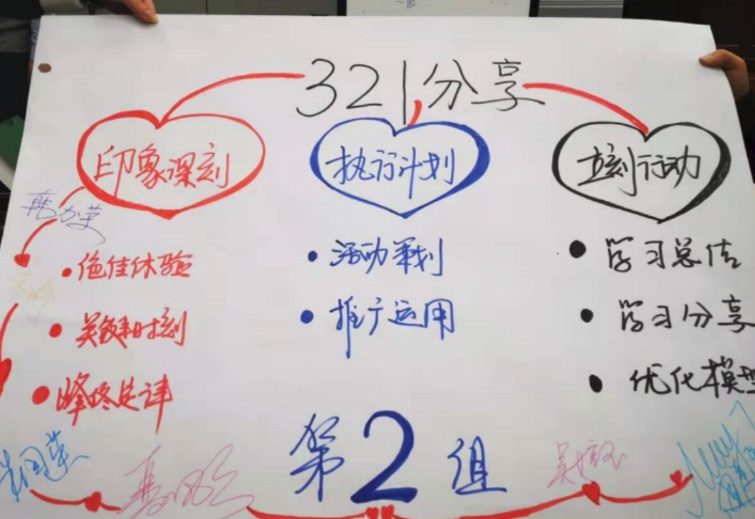 321分享
印象深刻
执行计划
立刻行动
绝佳体验
关键时刻
峰终定律
活动策划
推广运用
学习总结
学习分享
优化模型
第2组